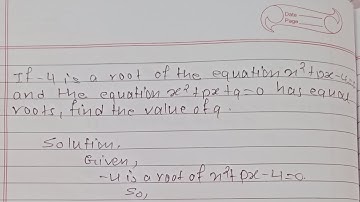 Date
Page
If -4 is a root of the equation x²+px-4=0
and the equation x²+px+q=0 has equal
roots, find the value of q.
Solution.
Given,
-4 is a root of x²+px-4=0.
So,